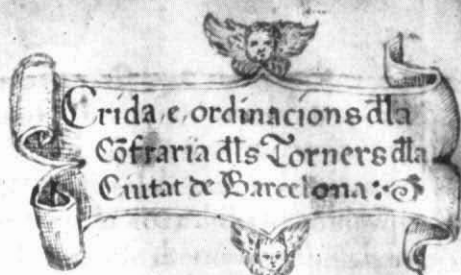 Crida, e, ordinacions dla
Cõfraria dls Torners dla
Ciutat de Barcelona: